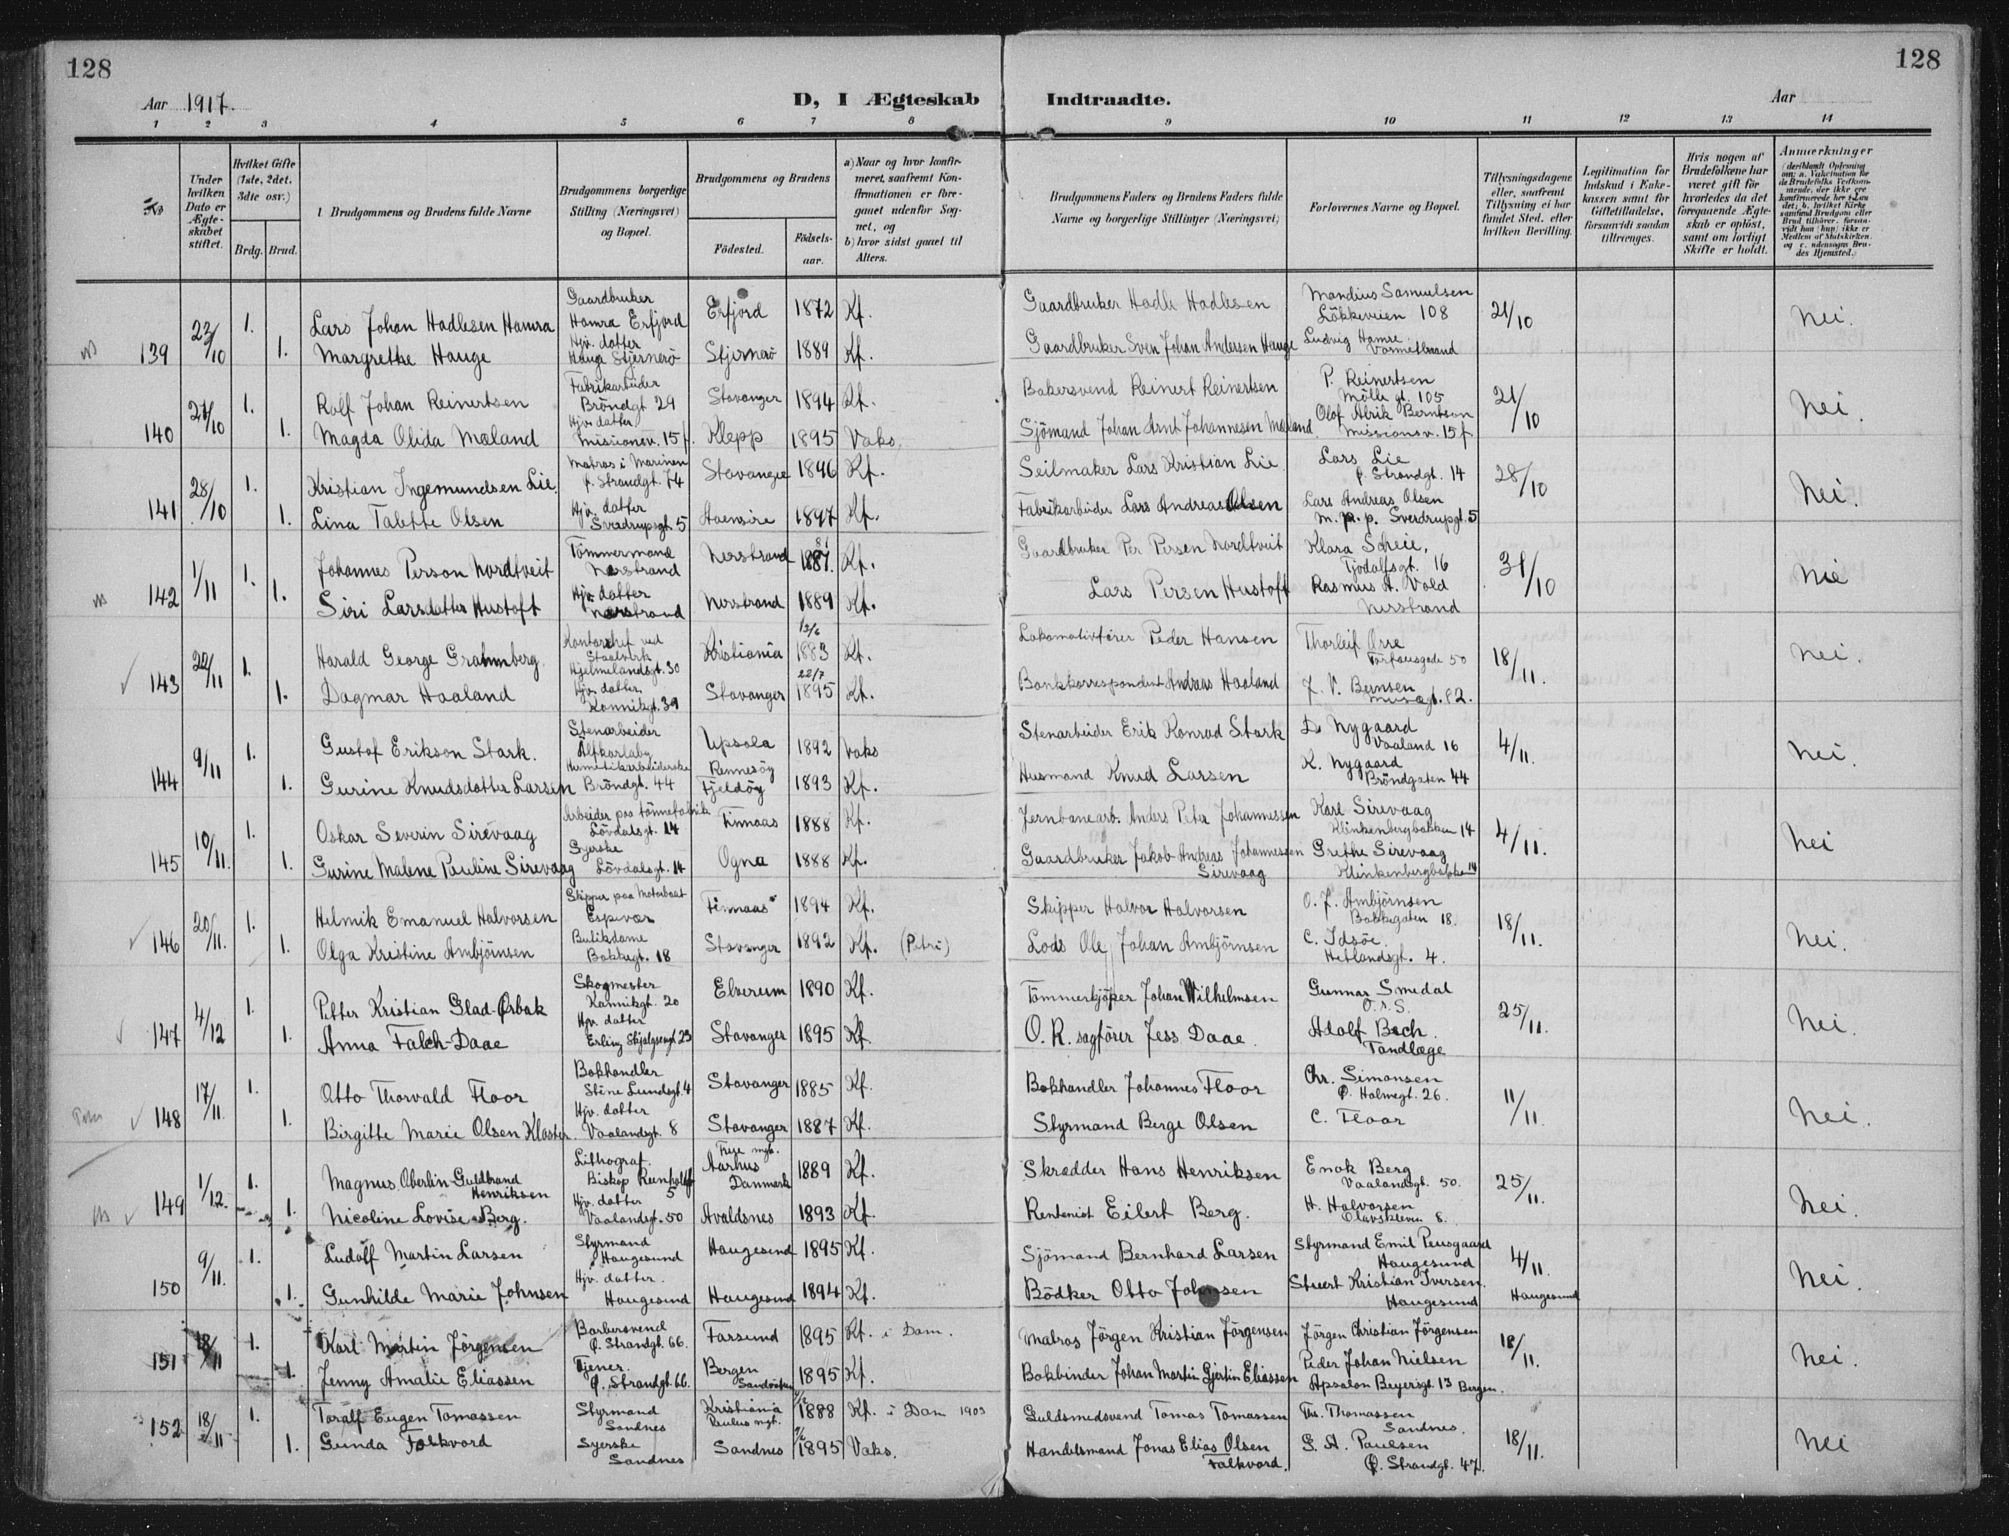 128
128
Aar 1917.
D, I Ægteskab Indtraadte.
Aar
1 2 3 4 5 6 7 8 9 10 11 12 13 14
No
Under hvilken Dato er Ægteskabet stiftet.
Hvilket Gifte (1ste, 2det, 3dte osv.)
Brdg. Brud.
Brudgommens og Brudens fulde Navne
Brudgommens borgerlige Stilling (Næringsvei) og Bopæl.
Brudgommens og Brudens
Fødested. Fødselsaar.
a) Naar og hvor konfirmeret, saafremt Konfirmationen er foregaaet udenfor Sognet, og
b) hvor sidst gaaet til Alters.
Brudgommens Faders og Brudens Faders fulde Navne og borgerlige Stillinger (Næringsvei)
Forlovernes Navne og Bopæl.
Tillysningsdagene eller, saafremt Tillysning ei har fundet Sted, efter hvilken Bevilling.
Legitimation for Indskud i Enkekassen samt for Giftetilladelse, forsaavidt saadan tiltrænges.
Hvis nogen af Brudefolkene har været gift før hvorledes da det foregaaende Ægteskab er opløst, samt om lovligt Skifte er holdt.
Anmærkninger
139 23/10 1. Lars Johan Hadlesen Hamra Gaardbruker Hamra Erfjord Erfjord 1872 Kf. Gaardbruker Hadle Hadlesen Mandius Samuelsen Lökkeveien 108 21/10 Nei.
1. Margrethe Hauge Hjv. datter Haug Stjernerö Stjernerö 1889 Kf. Gaardbruker Sven Johan Andersen Hauge Ludvig Hamre
140 21/10 1. Rolf Johan Reinertsen Fabrikarbeider Bröndgt 29 Stavanger 1894 Kf. Bakersvend Reinert Reinertsen P. Reinertsen Mölle gt. 105 21/10 Nei.
1. Magda Olida Mæland Hjv. datter Missionsv. 15 f. Klepp 1895 Vaks. Sjömand Johan Arnt Johannesen Mæland Olaf Alrik Berntson Missionsv. 15 f
141 28/10 1. Kristian Ingemundsen Lie. Matros i Marinen Ø. Strandgt. 74 Stavanger 1896 Kf. Seilmaker Lars Kristian Lie Lars Lie Ø. Strandgt. 14 28/10 Nei.
1. Lina Talette Olsen Hjv. datter Sverdrupsgt. 5 1897 Kf. Fabrikarbeider Lars Andreas Olsen Lars Andreas Olsen m. p. p. Sverdrupgt. 5
142 1/11 1. Johannes Person Nordtveit Tömmermand Nerstrand Nerstrand 1881. Kf. Gaardbruker Per Persen Nordtveit Klara Scheie, Tjodolfsgt. 16 31/10 Nei
1. Siri Larsdatter Hustoft Hjv. datter Nerstrand Nerstrand 1889 Kf. Lars Persen Hustoft Rasmus A. Vold Nerstrand
143 22/11 1. Harald George Grahmberg. Kontorchef ved Staalverk Hjelmelandsgt. 30 Kristiania 13/6 1883 Kf. Lokomotivfører Peder Hansen Thorleif Orre 18/11. Nei.
1. Dagmar Haaland Hjv. datter Kannikgt. 39 Stavanger 22/7 1895 Kf. Bankkorrespondent Andreas Haaland J. V. Bernsen Musægt. 82.
144 9/11 1. Gustaf Erikson Stark. Stenarbeider Älfkarlaby Upsala 1892 Vaks Stenarbeider Erik Konrad Stark D. Nygaard Vaaland 16 4/11. Nei.
1. Gurine Knudsdatter Larsen Hermetikarbeiderske Bröndgt. 44 Rennesöy Fjelöy 1893 Kf. Husmand Knud Larsen K. Nygaard Bröndgaten 44
145 10/11. 1. Oskar Severin Sirevaag Arbeider paa tönnefabrik Lövdalsgt. 14 Finnaas 1888 Kf. Jernbanearb. Anders Peter Johannessen Karl Sirevaag Klinkenbergbakken 14 4/11. Nei
1. Gurine Malene Pauline Sirevaag Syerske Lövdalsgt. 14 Ogna 1888 Kf. Gaardbruker Jakob Andreas Johannessen Sirevaag Grethe Sirevaag Klinkenbergbakken 14
146 20/11. 1. Helmik Emanuel Halvorsen Skipper paa Motorbaat Espevær Finnaas 1894 Kf. Skipper Halvor Halvorsen O. J. Ambjörnsen Bakkegaten 18. 18/11. Nei.
1. Olga Kristine Ambjörnsen Butikdame Bakkegt. 18 Stavanger 1892 Kf. (Petri) Lods Ole Johan Ambjörnsen C. Idsöe Hetlandsgt. 4.
147 4/12 1. Petter Kristian Glad-Ørbak Skogmester Kannikgt. 20 Elverum 1890 Kf. Tömmerkjöper Johan Wilhelmsen Gunnar Smedal O. r. S. 25/11. Nei.
1. Anna Falch-Daae Hjv. datter Erling Skjalgsøngt 23 Stavanger 1895 Kf. O. R. sagförer Jess Daae. Adolf Bech. Tandlæge
148 17/11. 1. Otto Thorvald Floor Bokhandler Stine Lundsgt. 4 Stavanger 1885 Kf. Bokhandler Johannes Floor Chr. Simonsen Ø. Holmegt. 26. 11/11. Nei.
1. Birgitte Marie Olsen Kloster. Hjv. datter Vaalandsgt. 8 Stavanger 1887 Kf. Styrmand Berge Olsen C. Floor
149 1/12. 1. Magnus Oberlin Guldbrand Henriksen Lithograf. Biskop Reinholdsgt 5 Frue mgt. Aarhus Danmark 1889 Kf. Skrædder Hans Henriksen Enok Berg Vaalandsgt. 50. 25/11. Nei.
1. Nicoline Lovise Berg. Hjv. datter Vaalandsgt. 50 Avaldsnes 1893 Kf. Rentenist Eilert Berg. H. Halvorsen Olavskleven 8.
150 9/11. 1. Ludolf Martin Larsen Styrmand Haugesund Haugesund 1895 Kf. Sjömand Bernhard Larsen Styrmand Emil Haugesund 4/11. Haugesund Nei.
1. Gunhilde Marie Johnsen Hjv. datter. Haugesund Haugesund 1894 Kf. Bödker Otto Johnsen Stuert Kristian Iversen. Haugesund
151 18/11 1. Karl Martin Jörgensen Barbersvend Ø. Strandgt. 66. Farsund 1895 Kf. i Dom. Matros Jörgen Kristian Jörgensen Jörgen Christian Jörgensen 18/11. Nei.
1. Jenny Amalie Eliassen Tjener. Ø. Strandgt. 66. Bergen Sandviken 1895 Kf. Bokbinder Johan Martin Gjertin Eliassen Peder Johan Nielsen Apsalon Beyersgt. 13 Bergen.
152 18/11 1. Toralf Eugen Tomassen Styrmand Sandnes Kristiania Paulus mgt. 1888 Kf. i Dom 1903 Guldsmedsvend Tomas Tomassen Ths. Thomassen Sandnes. 18/11. Nei
1. Gunda Folkvord Syerske Sandnes Sandnes 1895 Vaks. Handelsmand Jonas Elias Olsen Folkvord. S. A. Paulsen Ø. Strandgt. 47.